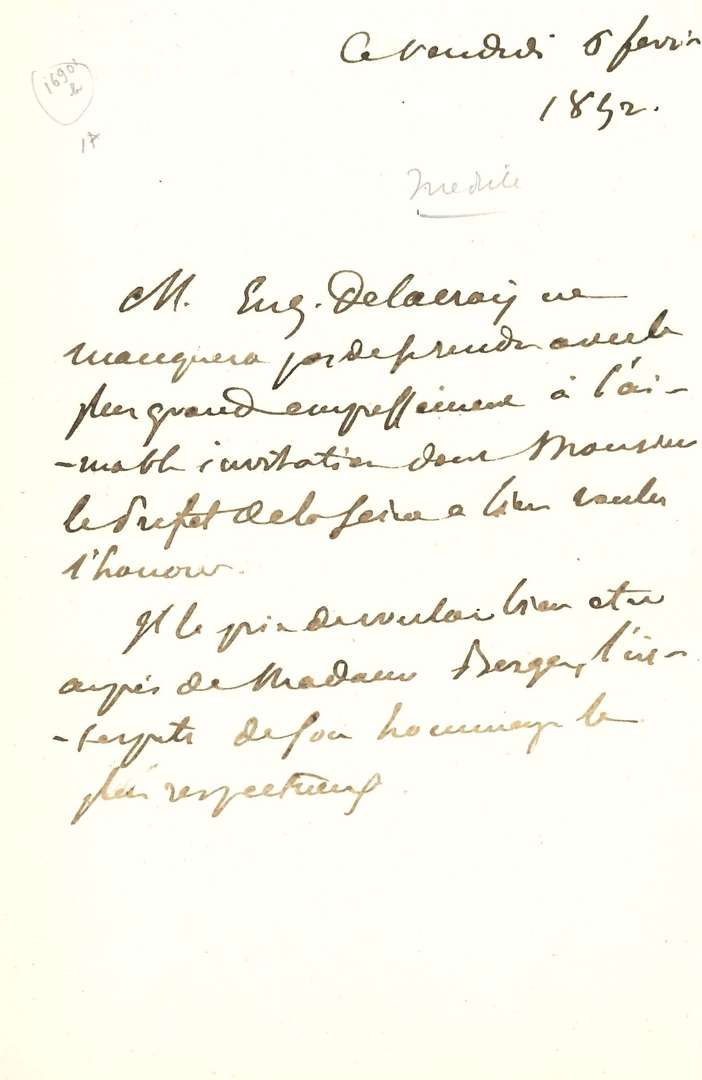 Ce vendredi 6 fevrier
1852.
1690
b
17
Inedite
M. Eug. Delacroix ne
manquera pas de se rendre avec le
plus grand empressement à l'ai-
-mable invitation dont Monsieur
le Prefet de la Seine a bien voulu
l'honorer.
Il le prie de vouloir bien etre
auprès de Madame Berger, l'in-
-terprete de son hommage le
plus respectueux.